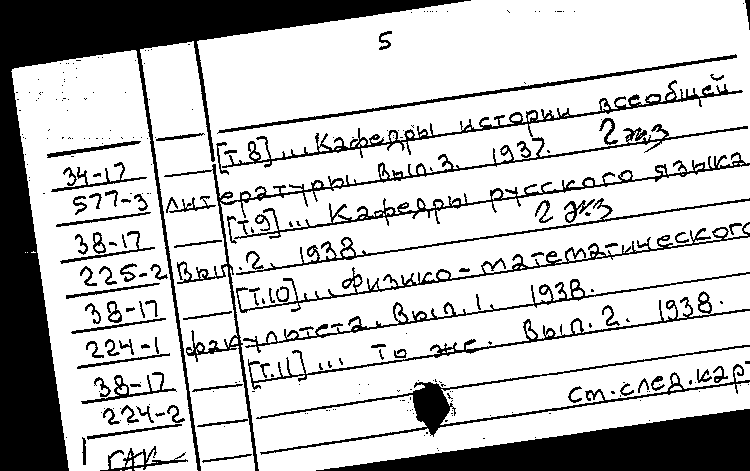 5
[т.8]... Кафедры истории всеобщей
34-17
литературы. Вып.3. 1937. 2 экз
577-3
[т.9]... Кафедры русского языка
38-17
Вып.2. 1938. 2 экз
225-2
[т.10]... Физико-математического
38-17
факультета. Вып.1. 1938.
224-1
[т.11]... То же. Вып.2. 1938.
38-17
224-2
см.след.карт